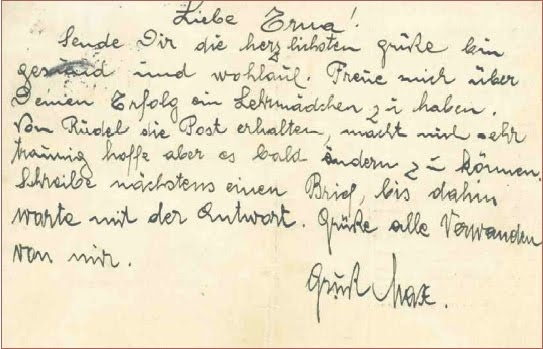 Liebe Erna!
Sende Dir die herzlichsten grüße bin
gesund und wohlauf. Freue mich über
Deinen Erfolg ein Lehrmädchen zu haben.
Von Rudel die Post erhalten, macht mich sehr
traurig hoffe aber es bald ändern zu können.
Schreibe nächstens einen Brief, bis dahin
warte mit der Antwort. Grüße alle Verwanden
von mir.
Gruß Max.